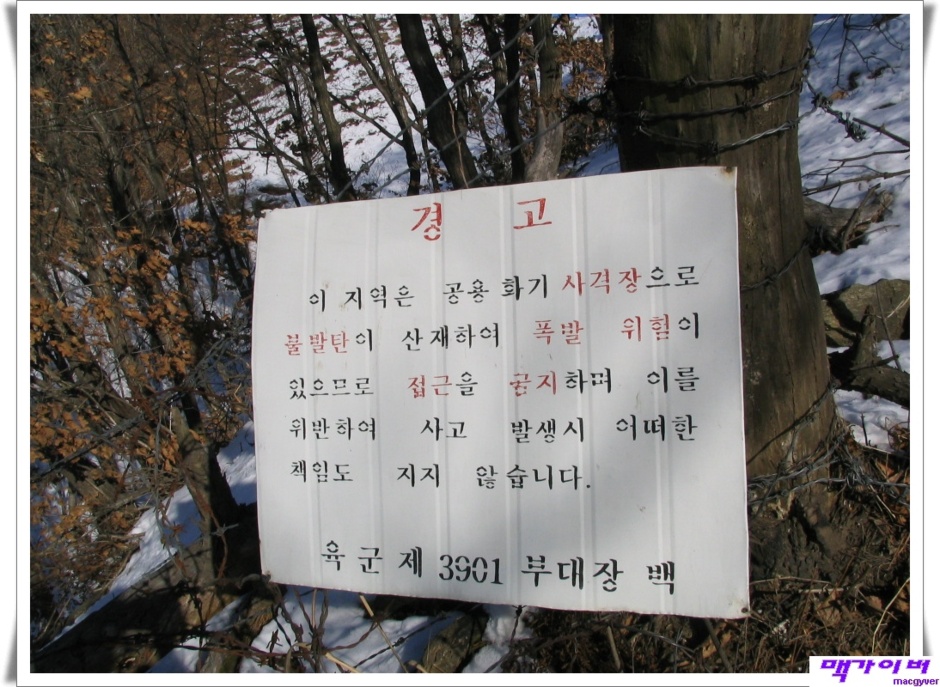 경 고
이 지역은 공용 화기 사격장으로
불발탄이 산재하여 폭발 위험이
있으므로 접근을 굼지하며 이를
위반하여 사고 발생시 어떠한
책임도 지지 않습니다.
육군 제 3901 부대장 백
맥가이버
macgyver